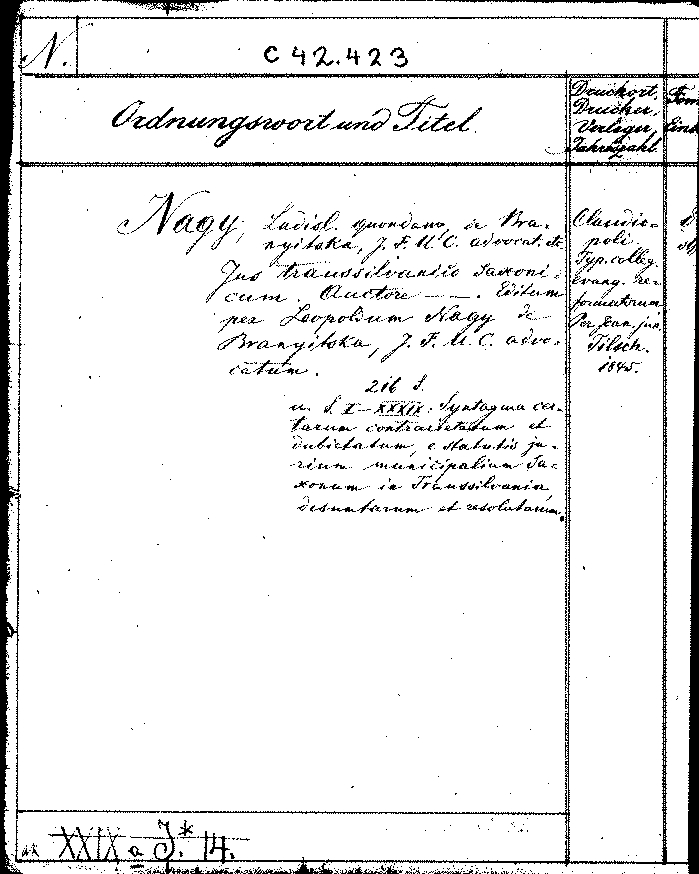 N.
C 42.423
Ordnungswort und Titel.
Druckort,
Drucker,
Verleger,
Jahrzahl.
Nagy, Ladisl. quondam, de Bra-
nyitska, J. F. U. C. advocat. etc.
Jus transsilvanico Saxoni-
cum. Auctore — — . Editum
per Leopoldum Nagy de
Branyitska, J. F. U. C. advo-
catum.
216 S.
u. S. I - XXXIX: Syntagma cer-
tarum contrarietatum et
dubietatum, e statutis ju-
rium municipalium Sa-
xonum in Transsilvania
desumtarum et resolutarum.
Claudio-
poli
Typ. colleg.
evang. re-
formatorum
Per Joan. jun.
Tilsch.
1845.
XXIX a J.* 14.